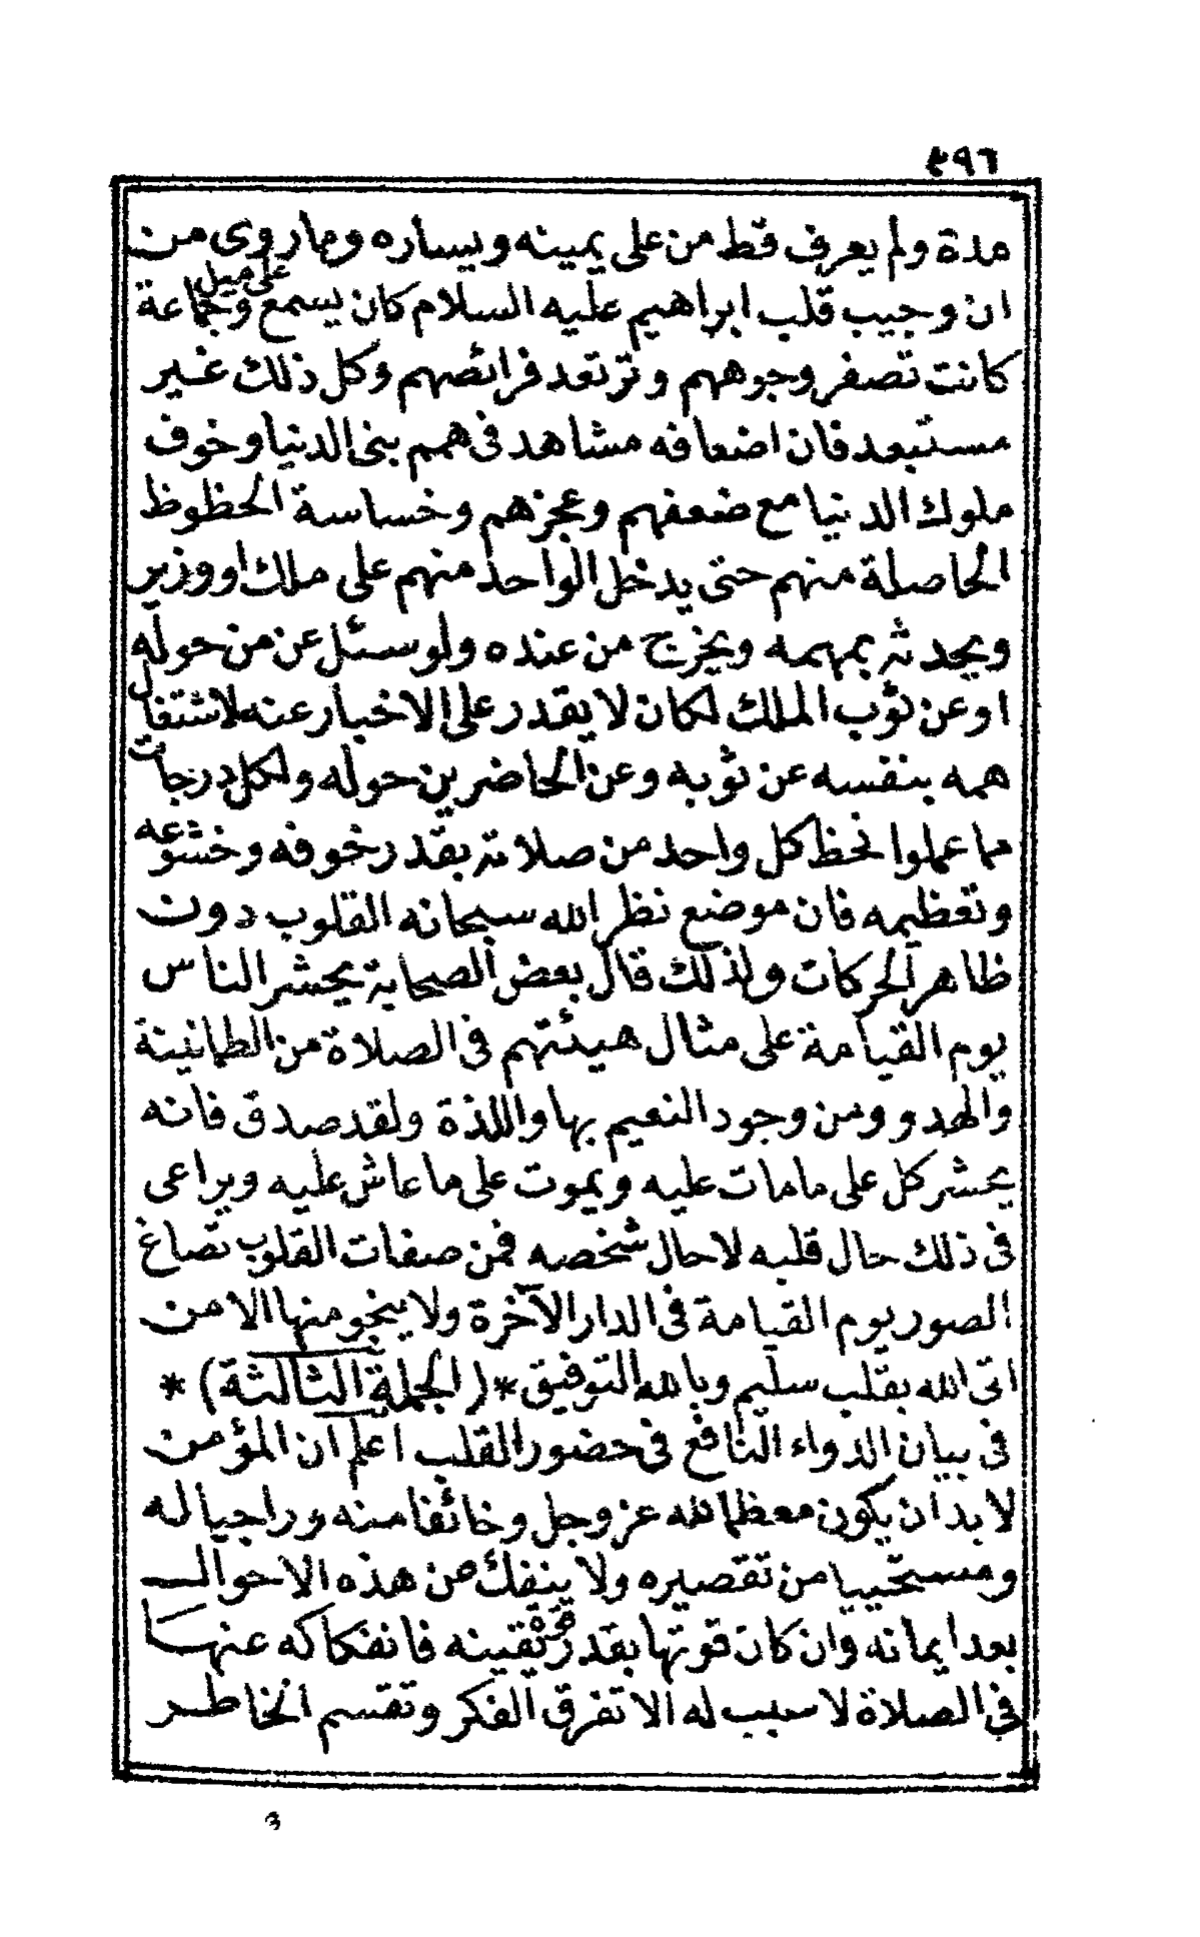 ٤٩٦
مدة ولم يعرف قط من على يمينه ويساره وما روى من
ان وجيب قلب ابراهيم عليه السلام كان يسمع على ميل وجماعة
كانت تصفر وجوههم وترتعد فرائصهم وكل ذلك غير
مستبعد فان اضعافه مشاهد فى همم بنى الدنيا وخوف
ملوك الدنيا مع ضعفهم وعجزهم وخساسة الحظوظ
الحاصلة منهم حتى يدخل الواحد منهم على ملك او وزير
ويحدثه بمهمه ويخرج من عنده ولو سئل عن من حوله
او عن ثوب الملك لكان لا يقدر على الاخبار عنه لاشتغال
همه بنفسه عن ثوبه وعن الحاضرين حوله ولكل درجات
مما عملوا فحظ كل واحد من صلاته بقدر خوفه وخشوعه
وتعظيمه فان موضع نظر الله سبحانه القلوب دون
ظاهر الحركات ولذلك قال بعض الصحابة يحشر الناس
يوم القيامة على مثال هيئتهم فى الصلاة من الطمانينة
والهدو ومن وجود النعيم بها واللذة ولقد صدق فانه
يحشر كل على ما مات عليه ويموت على ما عاش عليه ويراعى
فى ذلك حال قلبه لا حال شخصه فمن صفات القلوب تصاغ
الصور يوم القيامة فى الدار الآخرة ولا ينجو منها الا من
اتى الله بقلب سليم وبالله التوفيق *(الجملة الثالثة)*
فى بيان الدواء النافع فى حضور القلب اعلم ان المؤمن
لا بد ان يكون معظما لله عز وجل وخائفا منه وراجيا له
ومستحييا من تقصيره ولا ينفك عن هذه الاحوال
بعد ايمانه وان كان قوتها بقدر قوة يقينه فانفكاكه عنها
فى الصلاة لا سبب له الا تفرق الفكر وتقسم الخاطر